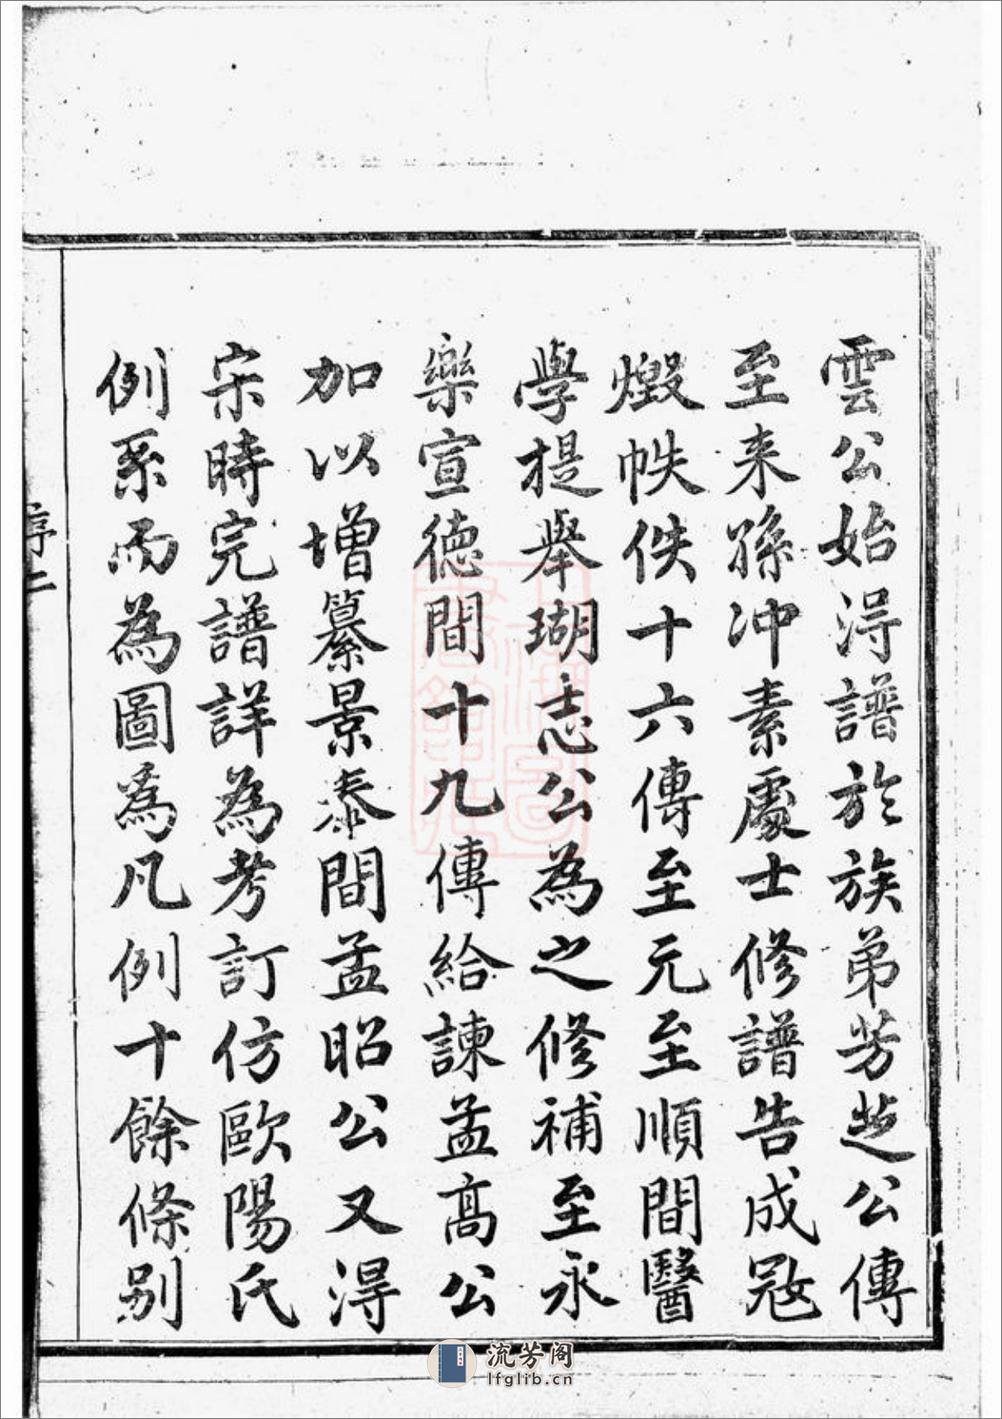 雲公始淂譜於族弟芳芝公傳
至来孫冲素處士修譜告成冦
燬帙佚十六傳至元至順間醫
學提舉瑚志公為之修補至永
樂宣德間十九傳給諫孟高公
加以增纂景泰間孟昭公又淂
宋時完譜詳為考訂仿歐陽氏
例系而為圖為凡例十餘條别
序二
流芳阁
lfglib.cn